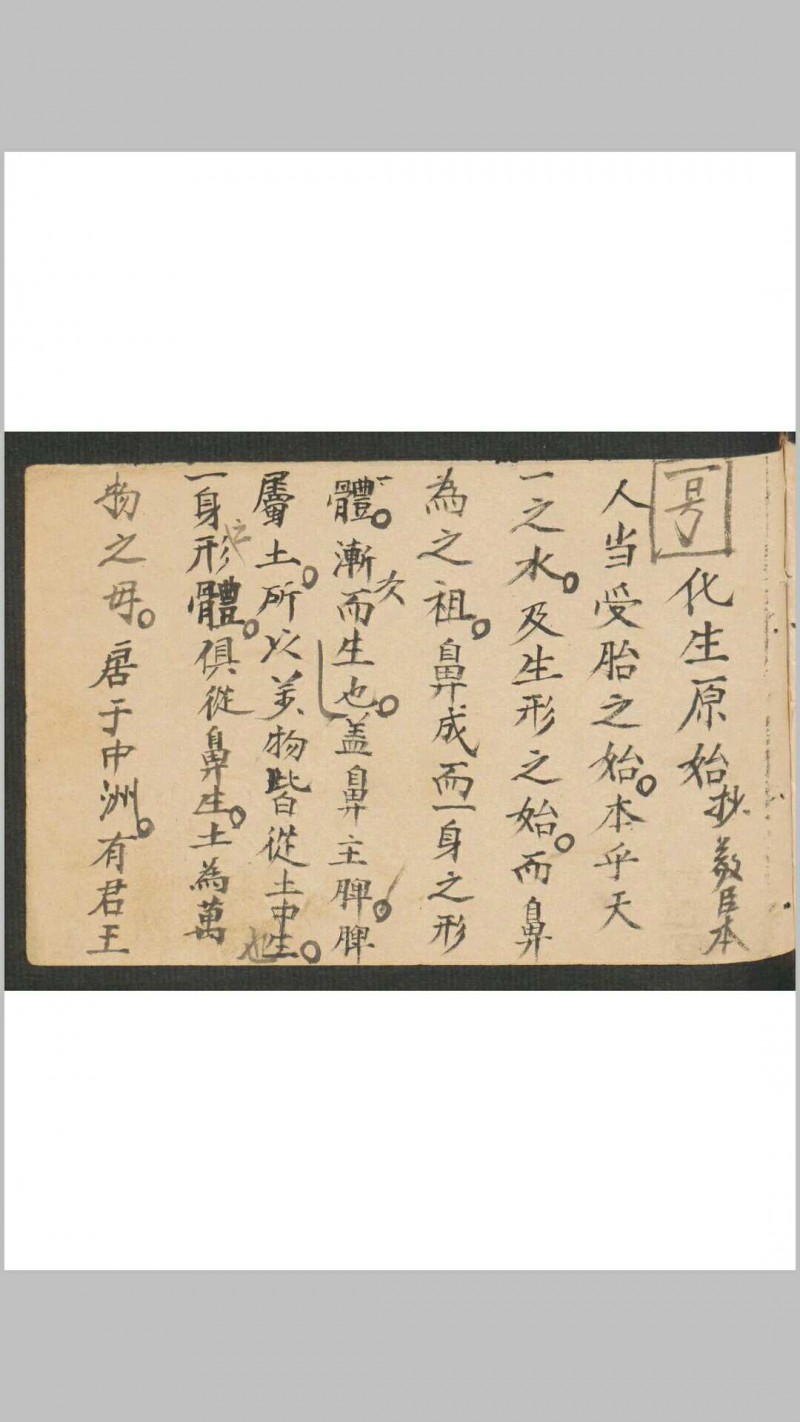 一号 化生原始 抄 敬臣本
人当受胎之始。本乎天
一之水。及生形之始。而鼻
為之祖。鼻成而一身之形
體。漸次而生也。盖鼻主脾。脾
屬土。所以萬物皆從土中生也。
一身之形體。俱從鼻生。土為萬
物之母。居于中洲。有君王